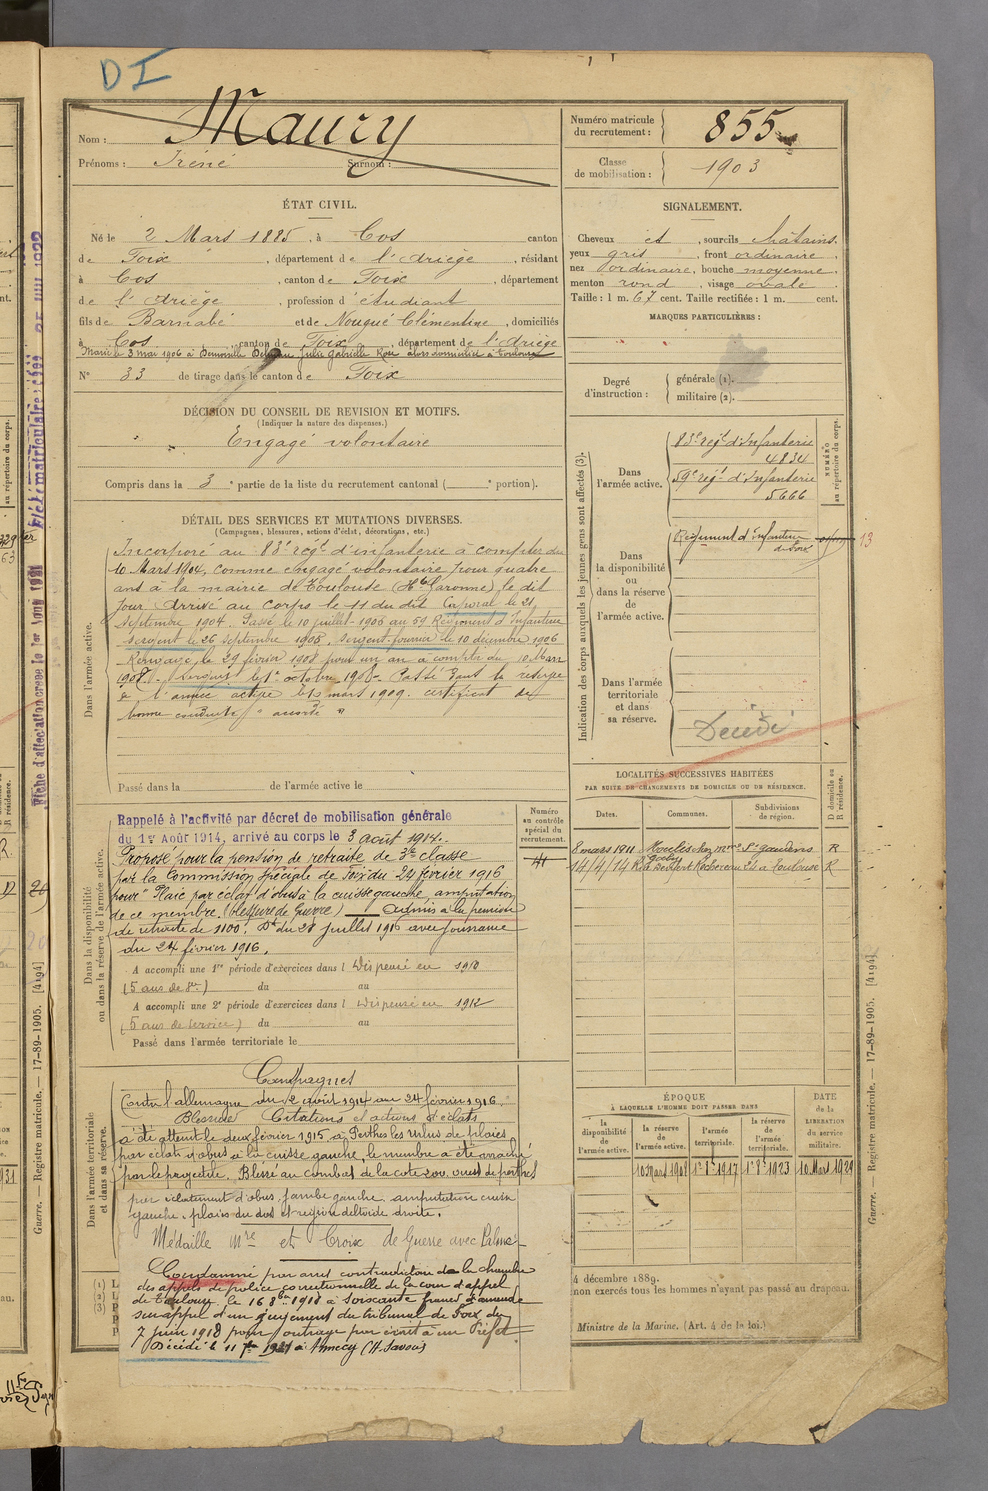 DI
Nom : Maury
Prénoms : Iréné Surnom :
Numéro matricule du recrutement : 855
Classe de mobilisation : 1903
ÉTAT CIVIL.
Né le 2 Mars 1885, à Cos canton
de Foix, département de l'Ariège, résidant
à Cos, canton de Foix, département
de l'Ariège, profession d'étudiant
fils de Barnabé et de Nougué Clémentine, domiciliés
à Cos canton de Foix, département de l'Ariège
Marié le 3 mai 1906 à Julie Gabrielle domicilié à Toulouse
N° 33 de tirage dans le canton de Foix
SIGNALEMENT.
Cheveux et, sourcils châtains.
yeux gris, front ordinaire,
nez ordinaire, bouche moyenne,
menton rond, visage ovale.
Taille : 1 m. 67 cent. Taille rectifiée : 1 m. cent.
MARQUES PARTICULIÈRES :
Degré d'instruction : générale (1).
militaire (2).
DÉCISION DU CONSEIL DE REVISION ET MOTIFS.
(Indiquer la nature des dispenses.)
Engagé volontaire
Compris dans la 3e partie de la liste du recrutement cantonal ( e portion).
DÉTAIL DES SERVICES ET MUTATIONS DIVERSES.
(Campagnes, blessures, actions d'éclat, décorations, etc.)
Dans l'armée active.
Incorporé au 83e régt d'infanterie à compter du
10 Mars 1904, comme engagé volontaire pour quatre
ans à la mairie de Toulouse (Hte Garonne) le dit
jour. Arrivé au corps le 11 du dit Caporal le 21
Septembre 1904. Passé le 10 juillet 1906 au 59 Régiment d'Infanterie
sergent le 26 Septembre 1905, sergent-fourrier le 10 décembre 1906
Rengagé le 29 février 1908 pour un an à compter du 10 Mars
1908. Sergent le 1er octobre 1908. Passé dans la réserve
de l'armée active le 10 mars 1909. certificat de
bonne conduite "accordé"
Passé dans la de l'armée active le
Indication des corps auxquels les jeunes gens sont affectés (3).
NUMÉRO au répertoire du corps.
Dans l'armée active.
83e régt d'Infanterie
4834
59e régt d'Infanterie
5666
Dans la disponibilité ou dans la réserve de l'armée active.
Régiment d'infanterie
de Foix
13
Dans l'armée territoriale et dans sa réserve.
Décédé
LOCALITÉS SUCCESSIVES HABITÉES
PAR SUITE DE CHANGEMENTS DE DOMICILE OU DE RÉSIDENCE.
Dates. Communes. Subdivisions de région. D domicile ou R résidence.
8 mars 1911 Moulis St Gaudens R
14/4/14 Toulouse R
Dans la disponibilité ou dans la réserve de l'armée active.
Numéro au contrôle spécial du recrutement.
Rappelé à l'activité par décret de mobilisation générale
du 1er Août 1914, arrivé au corps le 3 août 1914.
Proposé pour la pension de retraite de 3e classe
par la Commission Spéciale de Foix du 24 février 1916
pour "Plaie par éclat d'obus à la cuisse gauche, amputation
de ce membre. (blessure de Guerre) Admis à la pension
de retraite de 1100f. Dt du 28 juillet 1916 avec jouissance
du 24 février 1916.
A accompli une 1re période d'exercices dans l Dispensé en 1910
(5 ans de Ser) du au
A accompli une 2e période d'exercices dans l Dispensé en 1912
(5 ans de service) du au
Passé dans l'armée territoriale le
Dans l'armée territoriale et dans sa réserve.
Campagnes
Contre l'allemagne du 2 août 1914 au 24 février 1916.
Blessures Citations et actions d'éclats
a été atteint le deux février 1915 à Perthes les Hurlus de plaies
par éclats d'obus à la cuisse gauche, le membre a été arraché
par le projectile. Blessé au combat de la cote 200 ouest de perthes
par éclatement d'obus jambe gauche, amputation cuisse
gauche, plaies du dos et région deltoïde droite.
Médaille Mre et Croix de Guerre avec Palme
Condamné par arrêt contradictoire de la chambre
des appels de police correctionnelle de la cour d'appel
de Toulouse le 16 8bre 1918 à soixante francs d'amende
sur appel d'un jugement du tribunal de Foix du
7 juin 1918 pour outrage par écrit à un Préfet
Décédé le 11 1921 à Annecy (H. Savoie)
ÉPOQUE
À LAQUELLE L'HOMME DOIT PASSER DANS
la disponibilité de l'armée active.
la réserve de l'armée active.
l'armée territoriale.
la réserve de l'armée territoriale.
DATE de la LIBÉRATION du service militaire.
10 mars 1908 1er 8e 1917 1er 8e 1923 10 Mars 1929
4 décembre 1889.
non exercés tous les hommes n'ayant pas passé au drapeau.
Ministre de la Marine. (Art. 4 de la loi.)
Guerre. — Registre matricule. — 17-89-1905. [4194]
Guerre. — Registre matricule. — 17-89-1905. [4194]